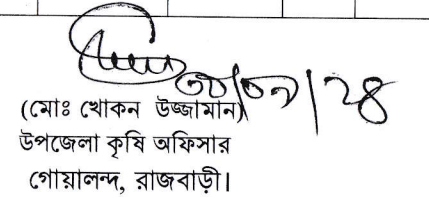 (মোঃ খোকন উজ্জামান)
উপজেলা কৃষি অফিসার
গোয়ালন্দ, রাজবাড়ী।